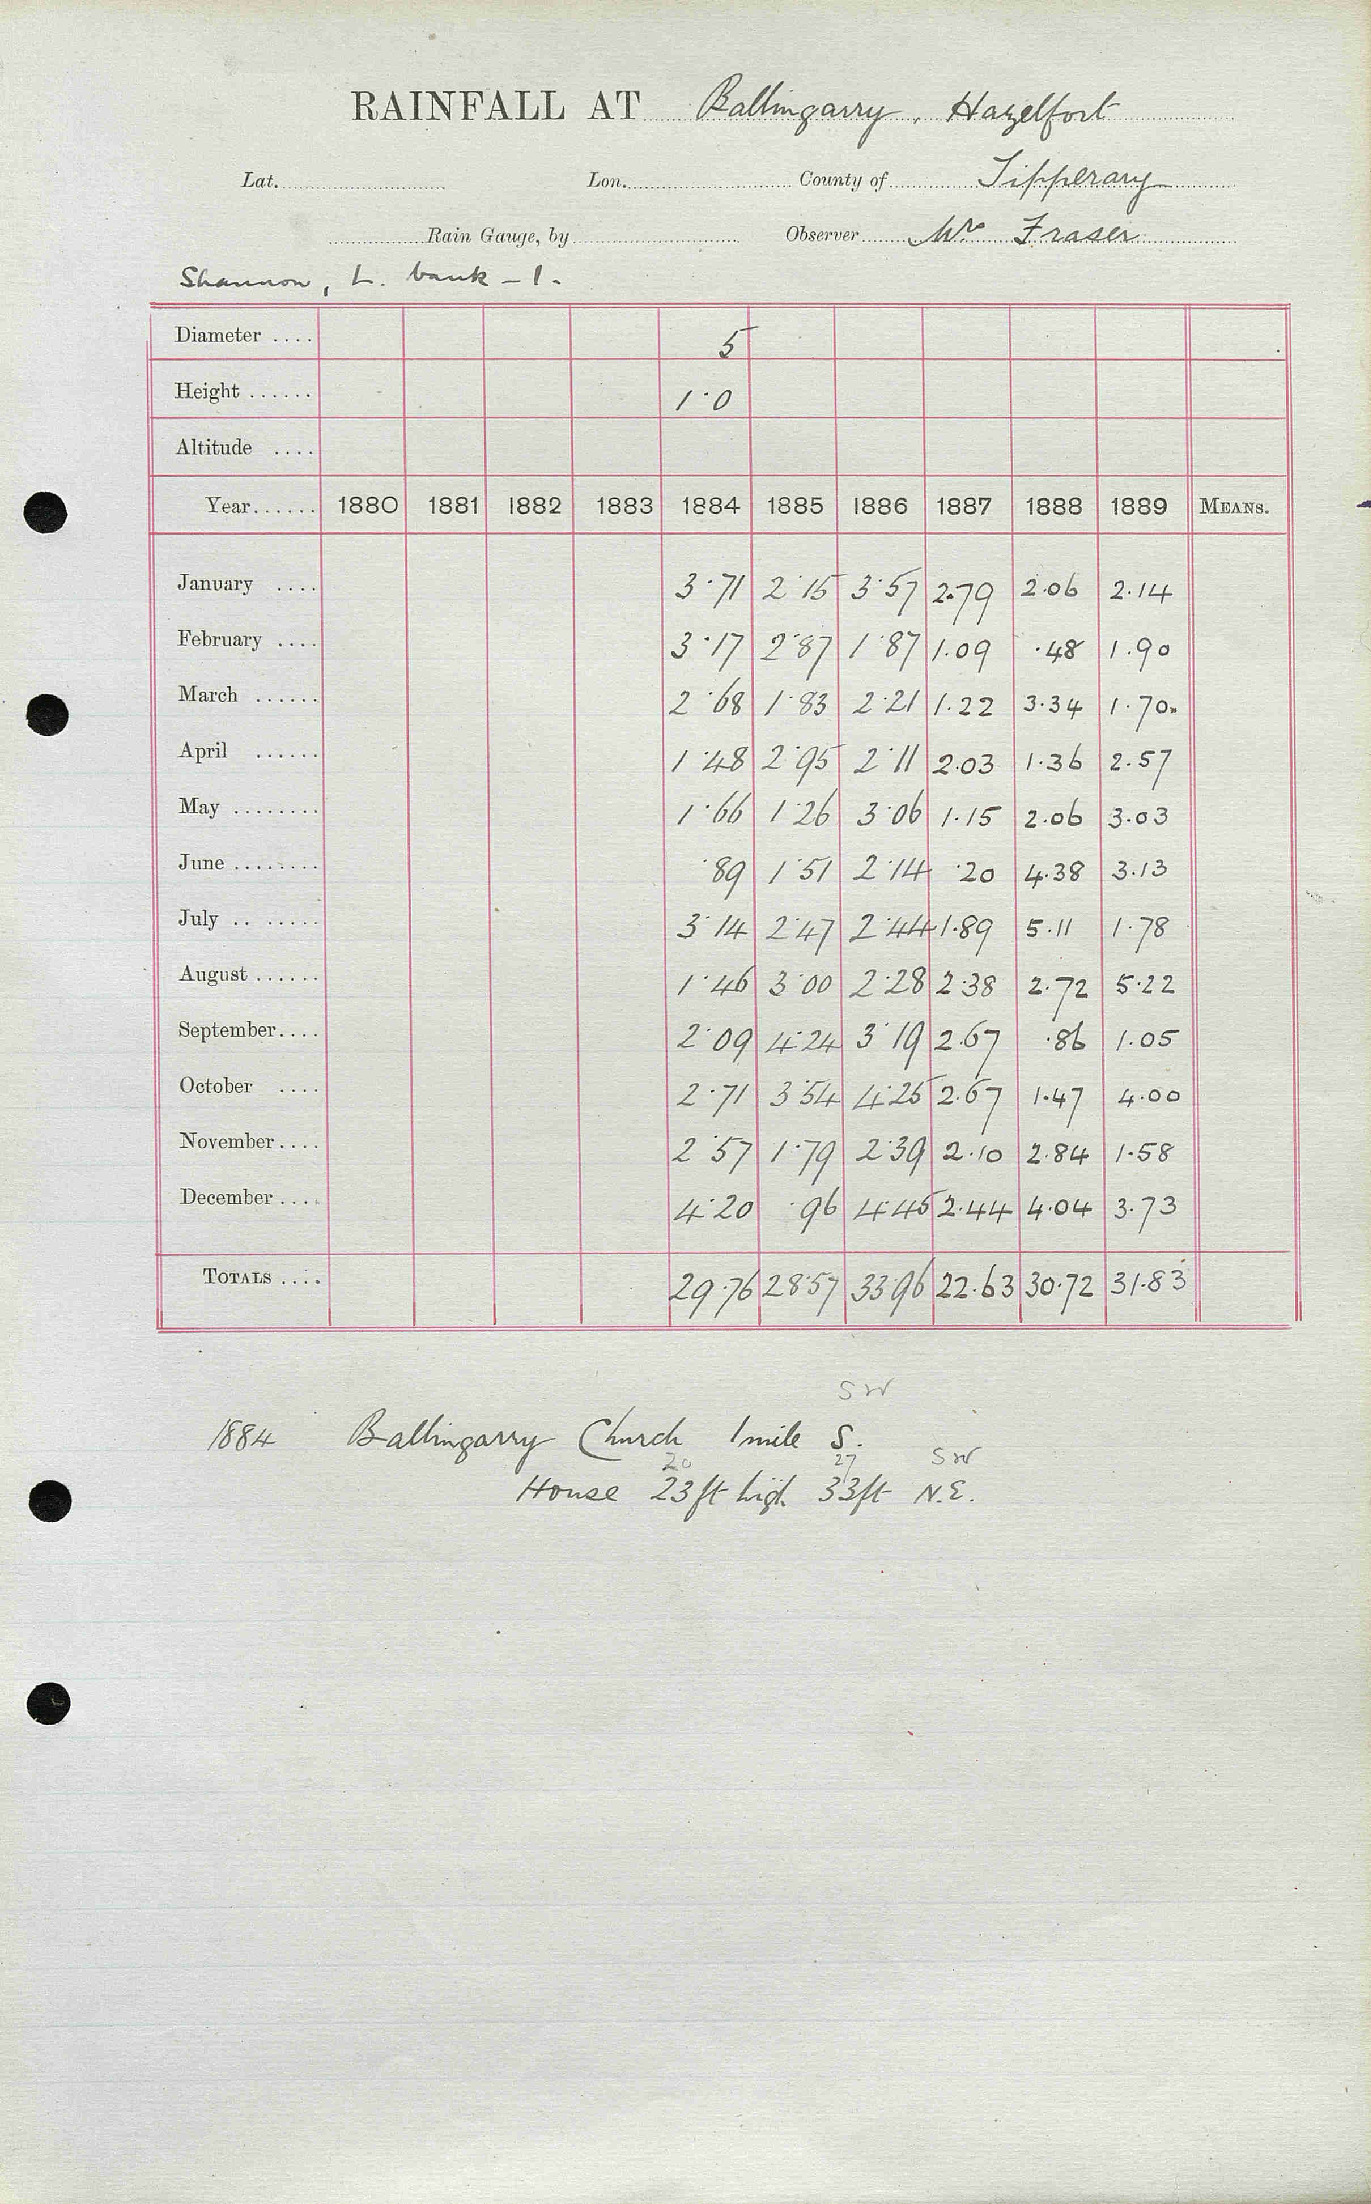 RAINFALL AT Ballingarry, Hazelfort
Lat. Lon. County of Tipperary
Rain Gauge, by Observer Mr Fraser
Shannon, L. bank - 1.
Diameter .... 5
Height ...... 1·0
Altitude ....
Year...... 1880 1881 1882 1883 1884 1885 1886 1887 1888 1889 MEANS.
January .... 3·71 2·15 3·57 2.79 2.06 2.14
February .... 3·17 2·87 1·87 1.09 .48 1.90
March ...... 2·68 1·83 2·21 1.22 3.34 1.70
April ...... 1·48 2·95 2·11 2.03 1.36 2.57
May ........ 1·66 1·26 3·06 1.15 2.06 3.03
June ........ ·89 1·51 2·14 .20 4.38 3.13
July .. ..... 3·14 2·47 2·44 1.89 5.11 1.78
August ...... 1·46 3·00 2·28 2.38 2.72 5.22
September.... 2·09 4·24 3·19 2.67 .86 1.05
October .... 2·71 3·54 4·25 2.67 1.47 4.00
November.... 2·57 1·79 2·39 2.10 2.84 1.58
December .... 4·20 ·96 4·45 2.44 4.04 3.73
TOTALS .... 29·76 28·57 33·96 22.63 30.72 31.83
SW
1884 Ballingarry Church 1 mile S.
20 27 SW
House 23ft high 33ft N.E.